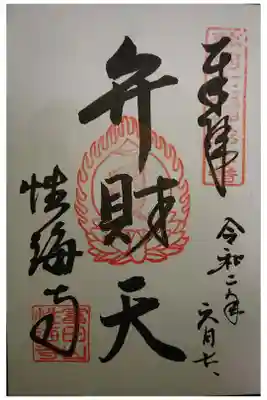 奉拝
令和二年
六月七、
弁財天
性海寺